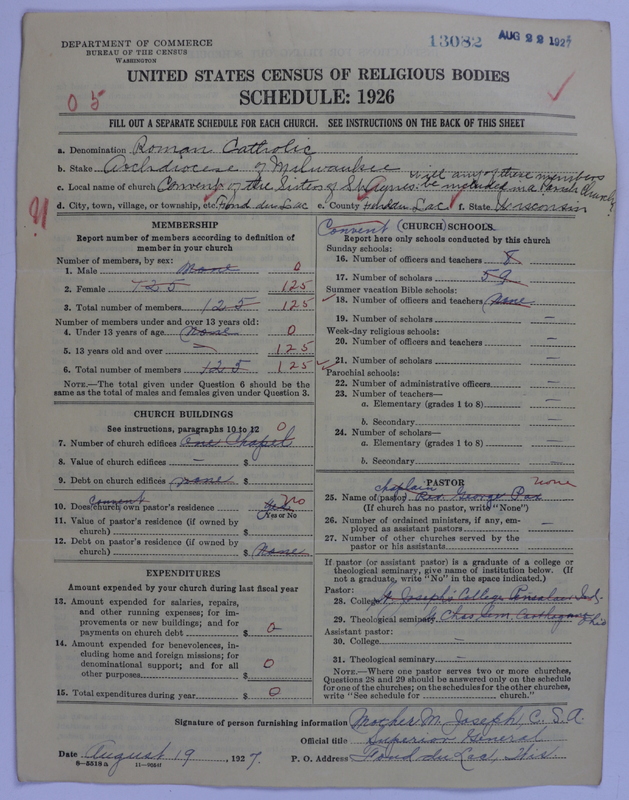 DEPARTMENT OF COMMERCE
BUREAU OF THE CENSUS
WASHINGTON
13082
AUG 22 1927
UNITED STATES CENSUS OF RELIGIOUS BODIES
SCHEDULE: 1926
0 5
FILL OUT A SEPARATE SCHEDULE FOR EACH CHURCH. SEE INSTRUCTIONS ON THE BACK OF THIS SHEET
a. Denomination Roman Catholic
b. Stake Archdiocese of Milwaukee
c. Local name of church Convent of the Sisters of St. Agnes
will any of these members be included in a Parish Church?
d. City, town, village, or township, etc. Fond du Lac e. County Fond du Lac f. State Wisconsin
MEMBERSHIP
Report number of members according to definition of
member in your church
Number of members, by sex:
1. Male None 0
2. Female 125 125
3. Total number of members 125 125
Number of members under and over 13 years old:
4. Under 13 years of age none 0
5. 13 years old and over — 125
6. Total number of members 125 125
NOTE.—The total given under Question 6 should be
same as the total of males and females given under Question 3.
CHURCH BUILDINGS
See instructions, paragraphs 10 to 12 0
7. Number of church edifices One Chapel
8. Value of church edifices — $
9. Debt on church edifices none $
10. Does church own pastor's residence Yes No
Convent
Yes or No
11. Value of pastor's residence (if owned by
church) $
12. Debt on pastor's residence (if owned by
church) $ None
EXPENDITURES
Amount expended by your church during last fiscal year
13. Amount expended for salaries, repairs,
and other running expenses; for im-
provements or new buildings; and for
payments on church debt $ 0
14. Amount expended for benevolences, in-
cluding home and foreign missions; for
denominational support; and for all
other purposes $ 0
15. Total expenditures during year $ 0
Convent (CHURCH) SCHOOLS
Report here only schools conducted by this church
Sunday schools:
16. Number of officers and teachers 8
17. Number of scholars 59
Summer vacation Bible schools:
18. Number of officers and teachers none
19. Number of scholars —
Week-day religious schools:
20. Number of officers and teachers —
21. Number of scholars —
Parochial schools:
22. Number of administrative officers —
23. Number of teachers—
a. Elementary (grades 1 to 8) —
b. Secondary —
24. Number of scholars—
a. Elementary (grades 1 to 8) —
b. Secondary —
PASTOR none
chaplain
25. Name of (pastor) Rev. George Pax
(If church has no pastor, write "None")
26. Number of ordained ministers, if any, em-
ployed as assistant pastors —
27. Number of other churches served by the
pastor or his assistants
If pastor (or assistant pastor) is a graduate of a college or
theological seminary, give name of institution below. (If
not a graduate, write "No" in the space indicated.)
Pastor:
28. College St. Joseph's College Ind.
29. Theological seminary Ohio
Assistant pastor:
30. College —
31. Theological seminary —
NOTE.—Where one pastor serves two or more churches,
Questions 28 and 29 should be answered only on the schedule
for one of the churches; on the schedules for the other churches,
write "See schedule for church."
Signature of person furnishing information Mother M. Joseph, C. S. A.
Official title Superior General
Date August 19, 1927. P. O. Address Fond du Lac, Wis.
8—5518 a 11—9084f